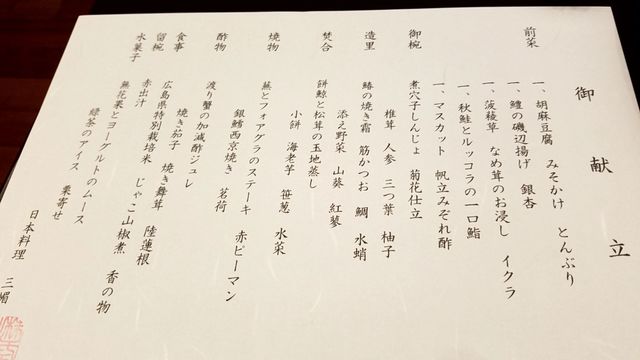 御献立
前菜
一、胡麻豆腐 みそかけ とんぶり
一、鱧の磯辺揚げ 銀杏
一、菠薐草 なめ茸のお浸し イクラ
一、秋鮭とルッコラの一口鮨
一、マスカット 帆立みぞれ酢
御椀
煮穴子しんじょ 菊花仕立
椎茸 人参 三つ葉 柚子
造里
鰆の焼き霜 筋かつお 鯛 水蛸
添え野菜 山葵 紅蓼
焚合
餅鯨と松茸の玉地蒸し
小餅 海老芋 笹葱 水菜
焼物
蕪とフォアグラのステーキ 赤ピーマン
銀鱈西京焼き 茗荷
酢物
渡り蟹の加減酢ジュレ
焼き茄子 焼き舞茸 陸蓮根
食事
広島県特別栽培米 じゃこ山椒煮 香の物
留椀
赤出汁
水菓子
無花果とヨーグルトのムース
緑茶のアイス 栗寄せ
日本料理 三嵋